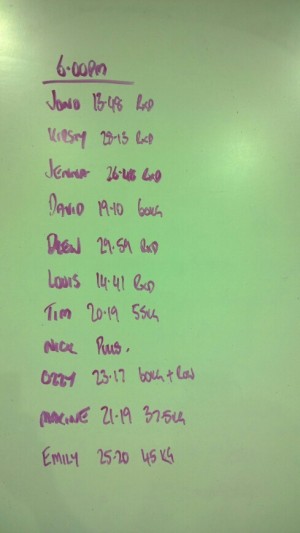 6.00PM
JONO 13.48 RXD
KIRSTY 28.13 RXD
JENNA 26.48 RXD
DAVID 19.10 60KG
DREW 29.59 RXD
LOUIS 14.41 RXD
TIM 20.19 55KG
NICK PLUS.
OZZY 23.17 60KG + ROW
MAXINE 21.19 37.5KG
EMILY 25.20 45KG